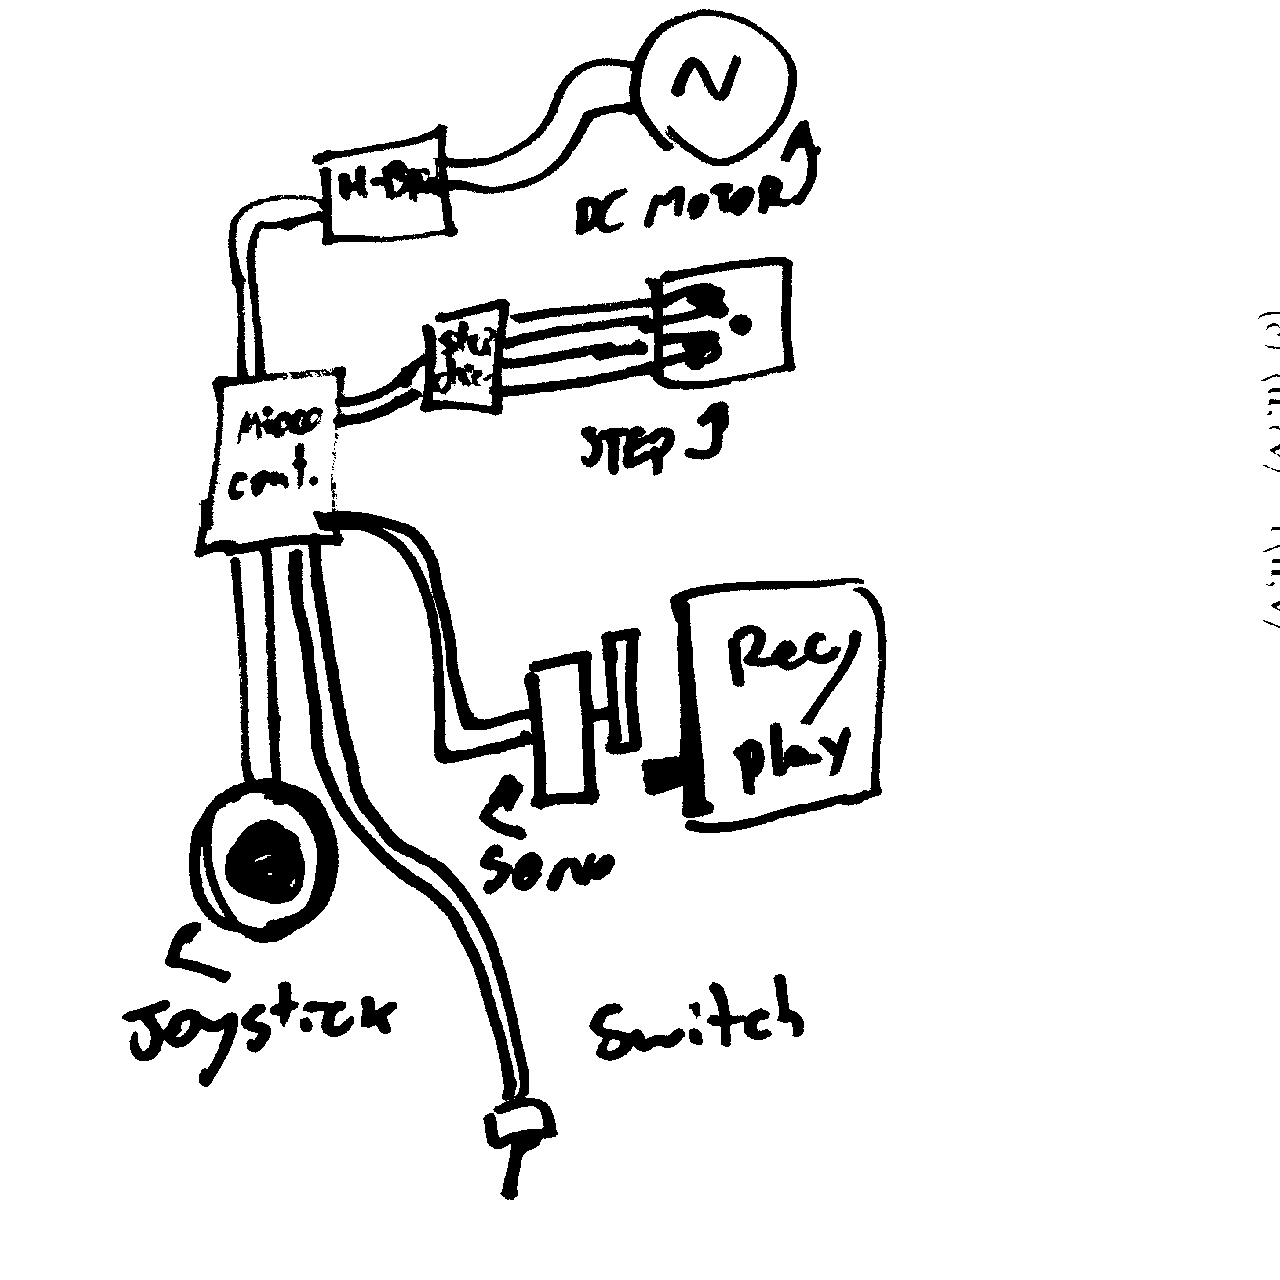 N
H-Bri
DC MOTOR
step
driv
STEP
Micro
cont.
Rec/
play
Servo
Joystick
Switch